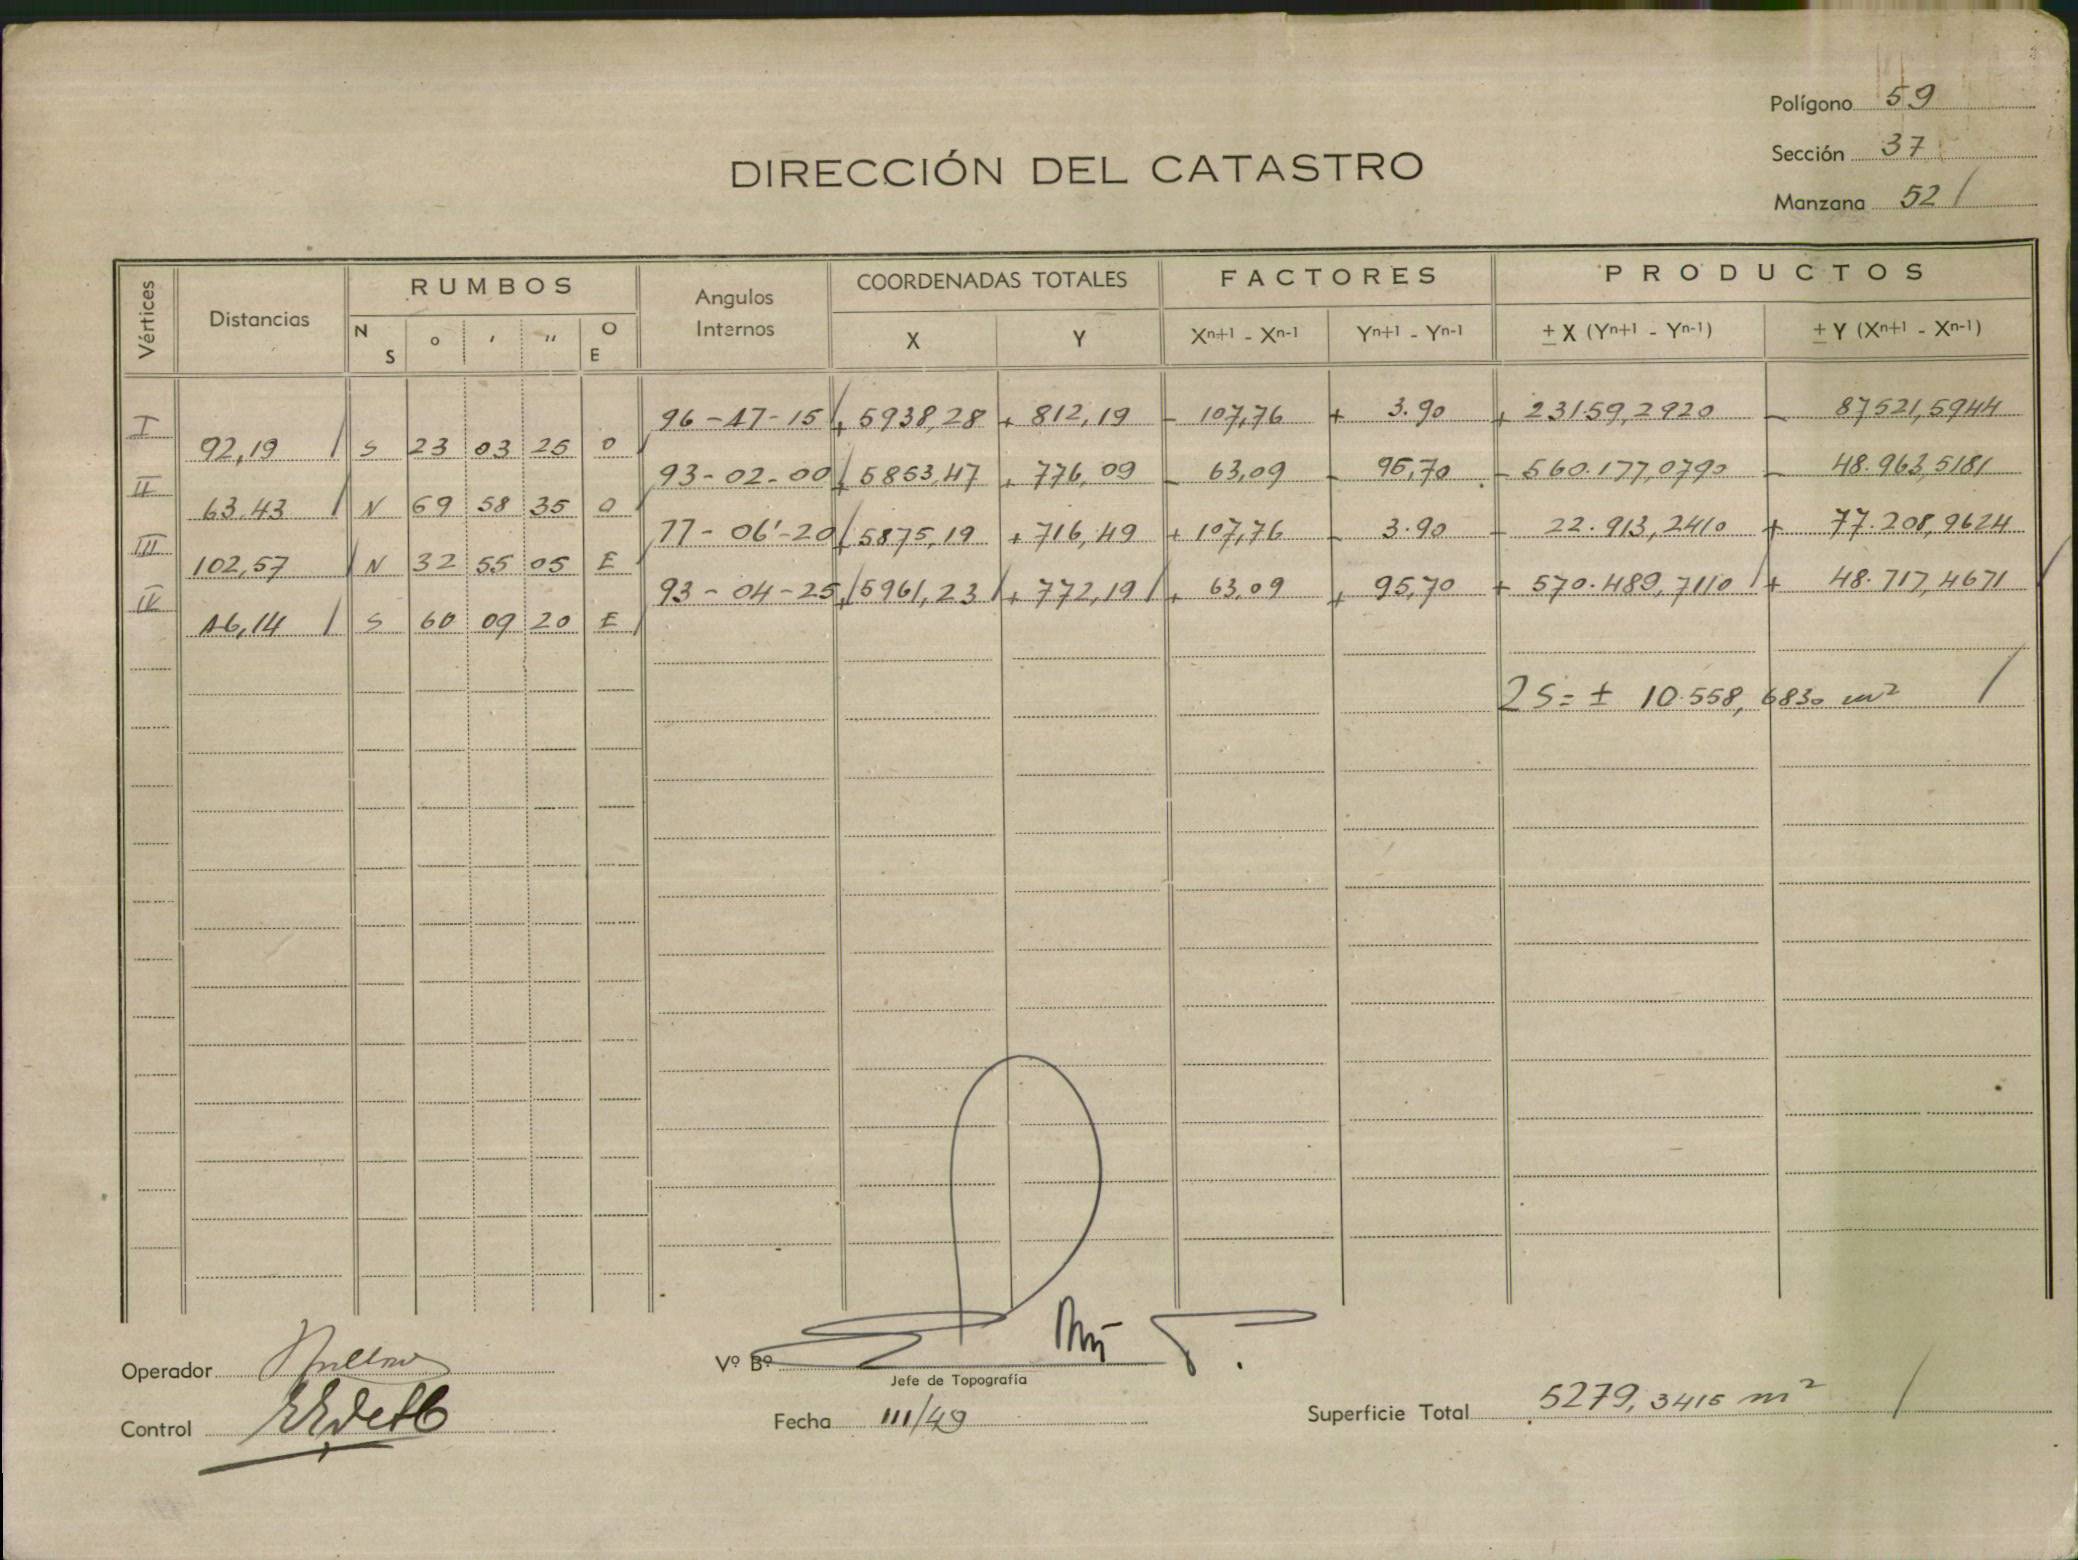 Polígono 59
DIRECCIÓN DEL CATASTRO
Sección 37
Manzana 52 /
Vértices
Distancias
RUMBOS
N S ° ' " O E
Angulos Internos
COORDENADAS TOTALES
X Y
FACTORES
Xn+1 - Xn-1 Yn+1 - Yn-1
PRODUCTOS
± X (Yn+1 - Yn-1) ± Y (Xn+1 - Xn-1)
I 96-47-15 + 5938,28 + 812,19 - 107,76 + 3.90 + 23159,2920 - 87521,5944
92,19 S 23 03 25 O
II 93-02-00 + 5853,47 + 776,09 - 63,09 - 95,70 - 560.177,0790 - 48.963,5181
63.43 N 69 58 35 O
III 77-06'-20 + 5875,19 + 716,49 + 107,76 - 3.90 - 22.913,2410 + 77.208,9624
102,57 N 32 55 05 E
IV 93-04-25 + 5961,23 + 772,19 + 63,09 + 95,70 + 570.489,7110 + 48.717,4671
46,14 S 60 09 20 E
2S = ± 10.558,6830 m²
Operador
Vº Bº
Jefe de Topografía
Control
Fecha III/49
Superficie Total 5279,3415 m²